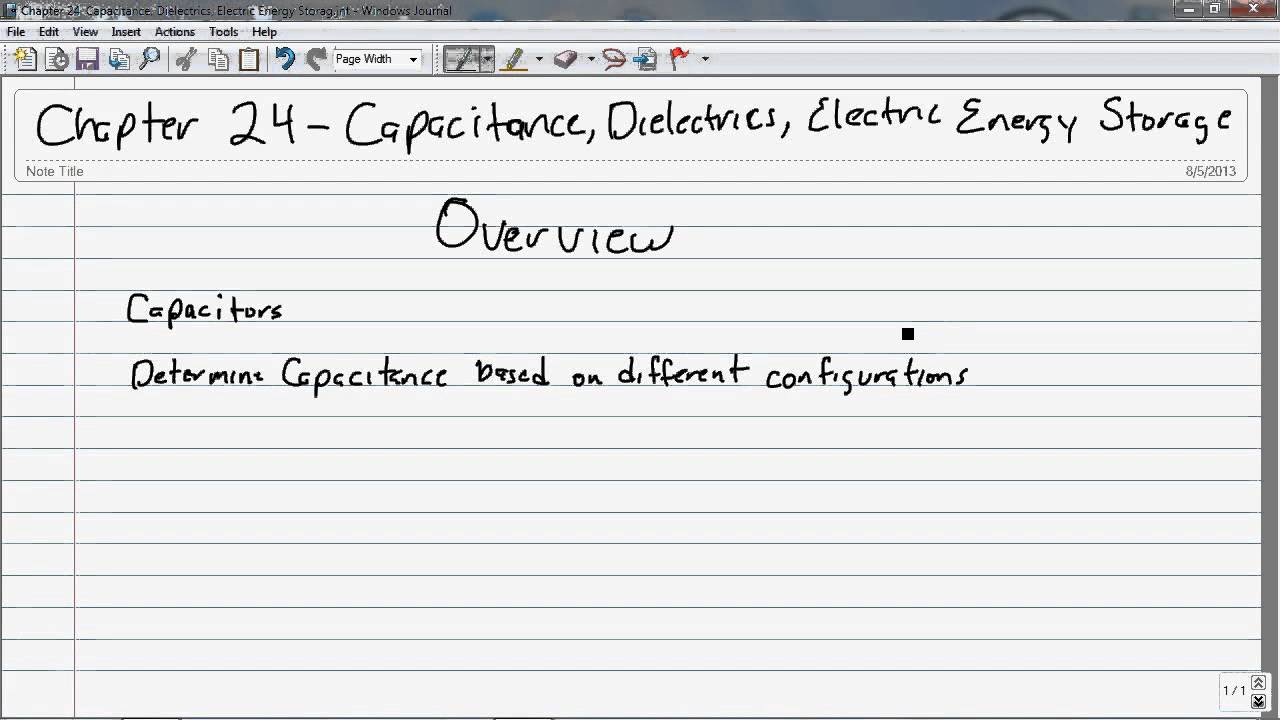 Chapter 24- Capacitance, Dielectrics, Electric Energy Storag.jnt - Windows Journal
File Edit View Insert Actions Tools Help
Page Width
Chapter 24 - Capacitance, Dielectrics, Electric Energy Storage
Note Title
8/5/2013
Overview
Capacitors
Determine Capacitance based on different configurations
1 / 1